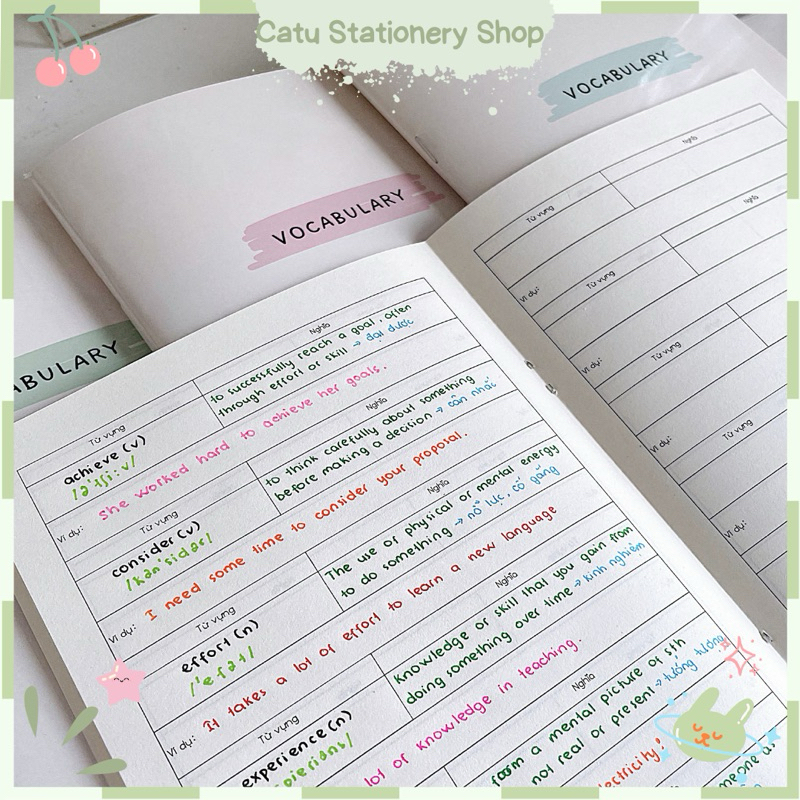 Catu Stationery Shop
VOCABULARY
VOCABULARY
ABULARY
Từ vựng
Nghĩa
achieve (v)
/ə'tʃi:v/
to successfully reach a goal, often
through effort or skill → đạt được
Ví dụ: She worked hard to achieve her goals.
Từ vựng
Nghĩa
consider (v)
/kən'sidər/
to think carefully about something
before making a decision → cân nhắc
Ví dụ: I need some time to consider your proposal.
Từ vựng
Nghĩa
effort (n)
/'efət/
The use of physical or mental energy
to do something → nỗ lực, cố gắng
Ví dụ: It takes a lot of effort to learn a new language
Từ vựng
Nghĩa
experience (n)
Knowledge or skill that you gain from
doing something over time → kinh nghiệm
lot of knowledge in teaching.
Nghĩa
a mental picture of sth
not real or present → tưởng tượng
Từ vựng
Nghĩa
Ví dụ:
Từ vựng
Nghĩa
Ví dụ:
Từ vựng
Ví dụ:
Từ vựng
Ví dụ: